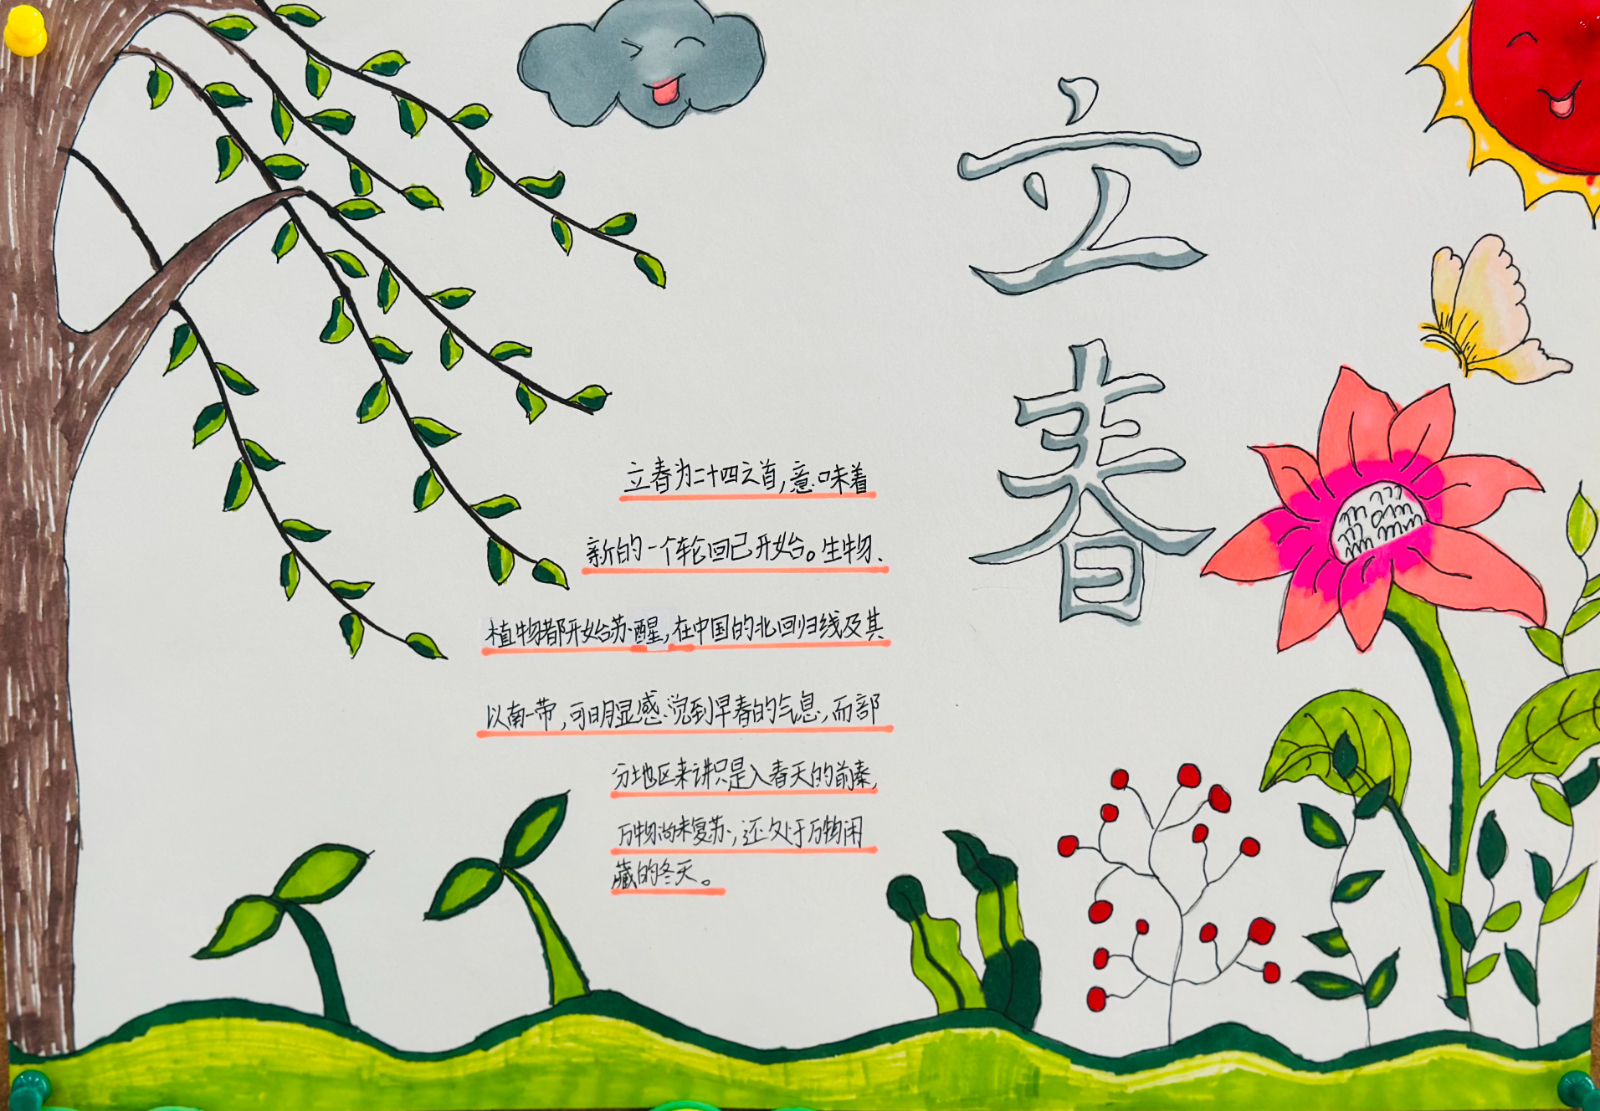 立春
立春为二十四之首,意味着
新的一个轮回已开始。生物、
植物都开始苏醒,在中国的北回归线及其
以南一带,可明显感觉到早春的气息,而部
分地区来讲只是入春天的前奏,
万物尚未复苏,还处于万物闭
藏的冬天。